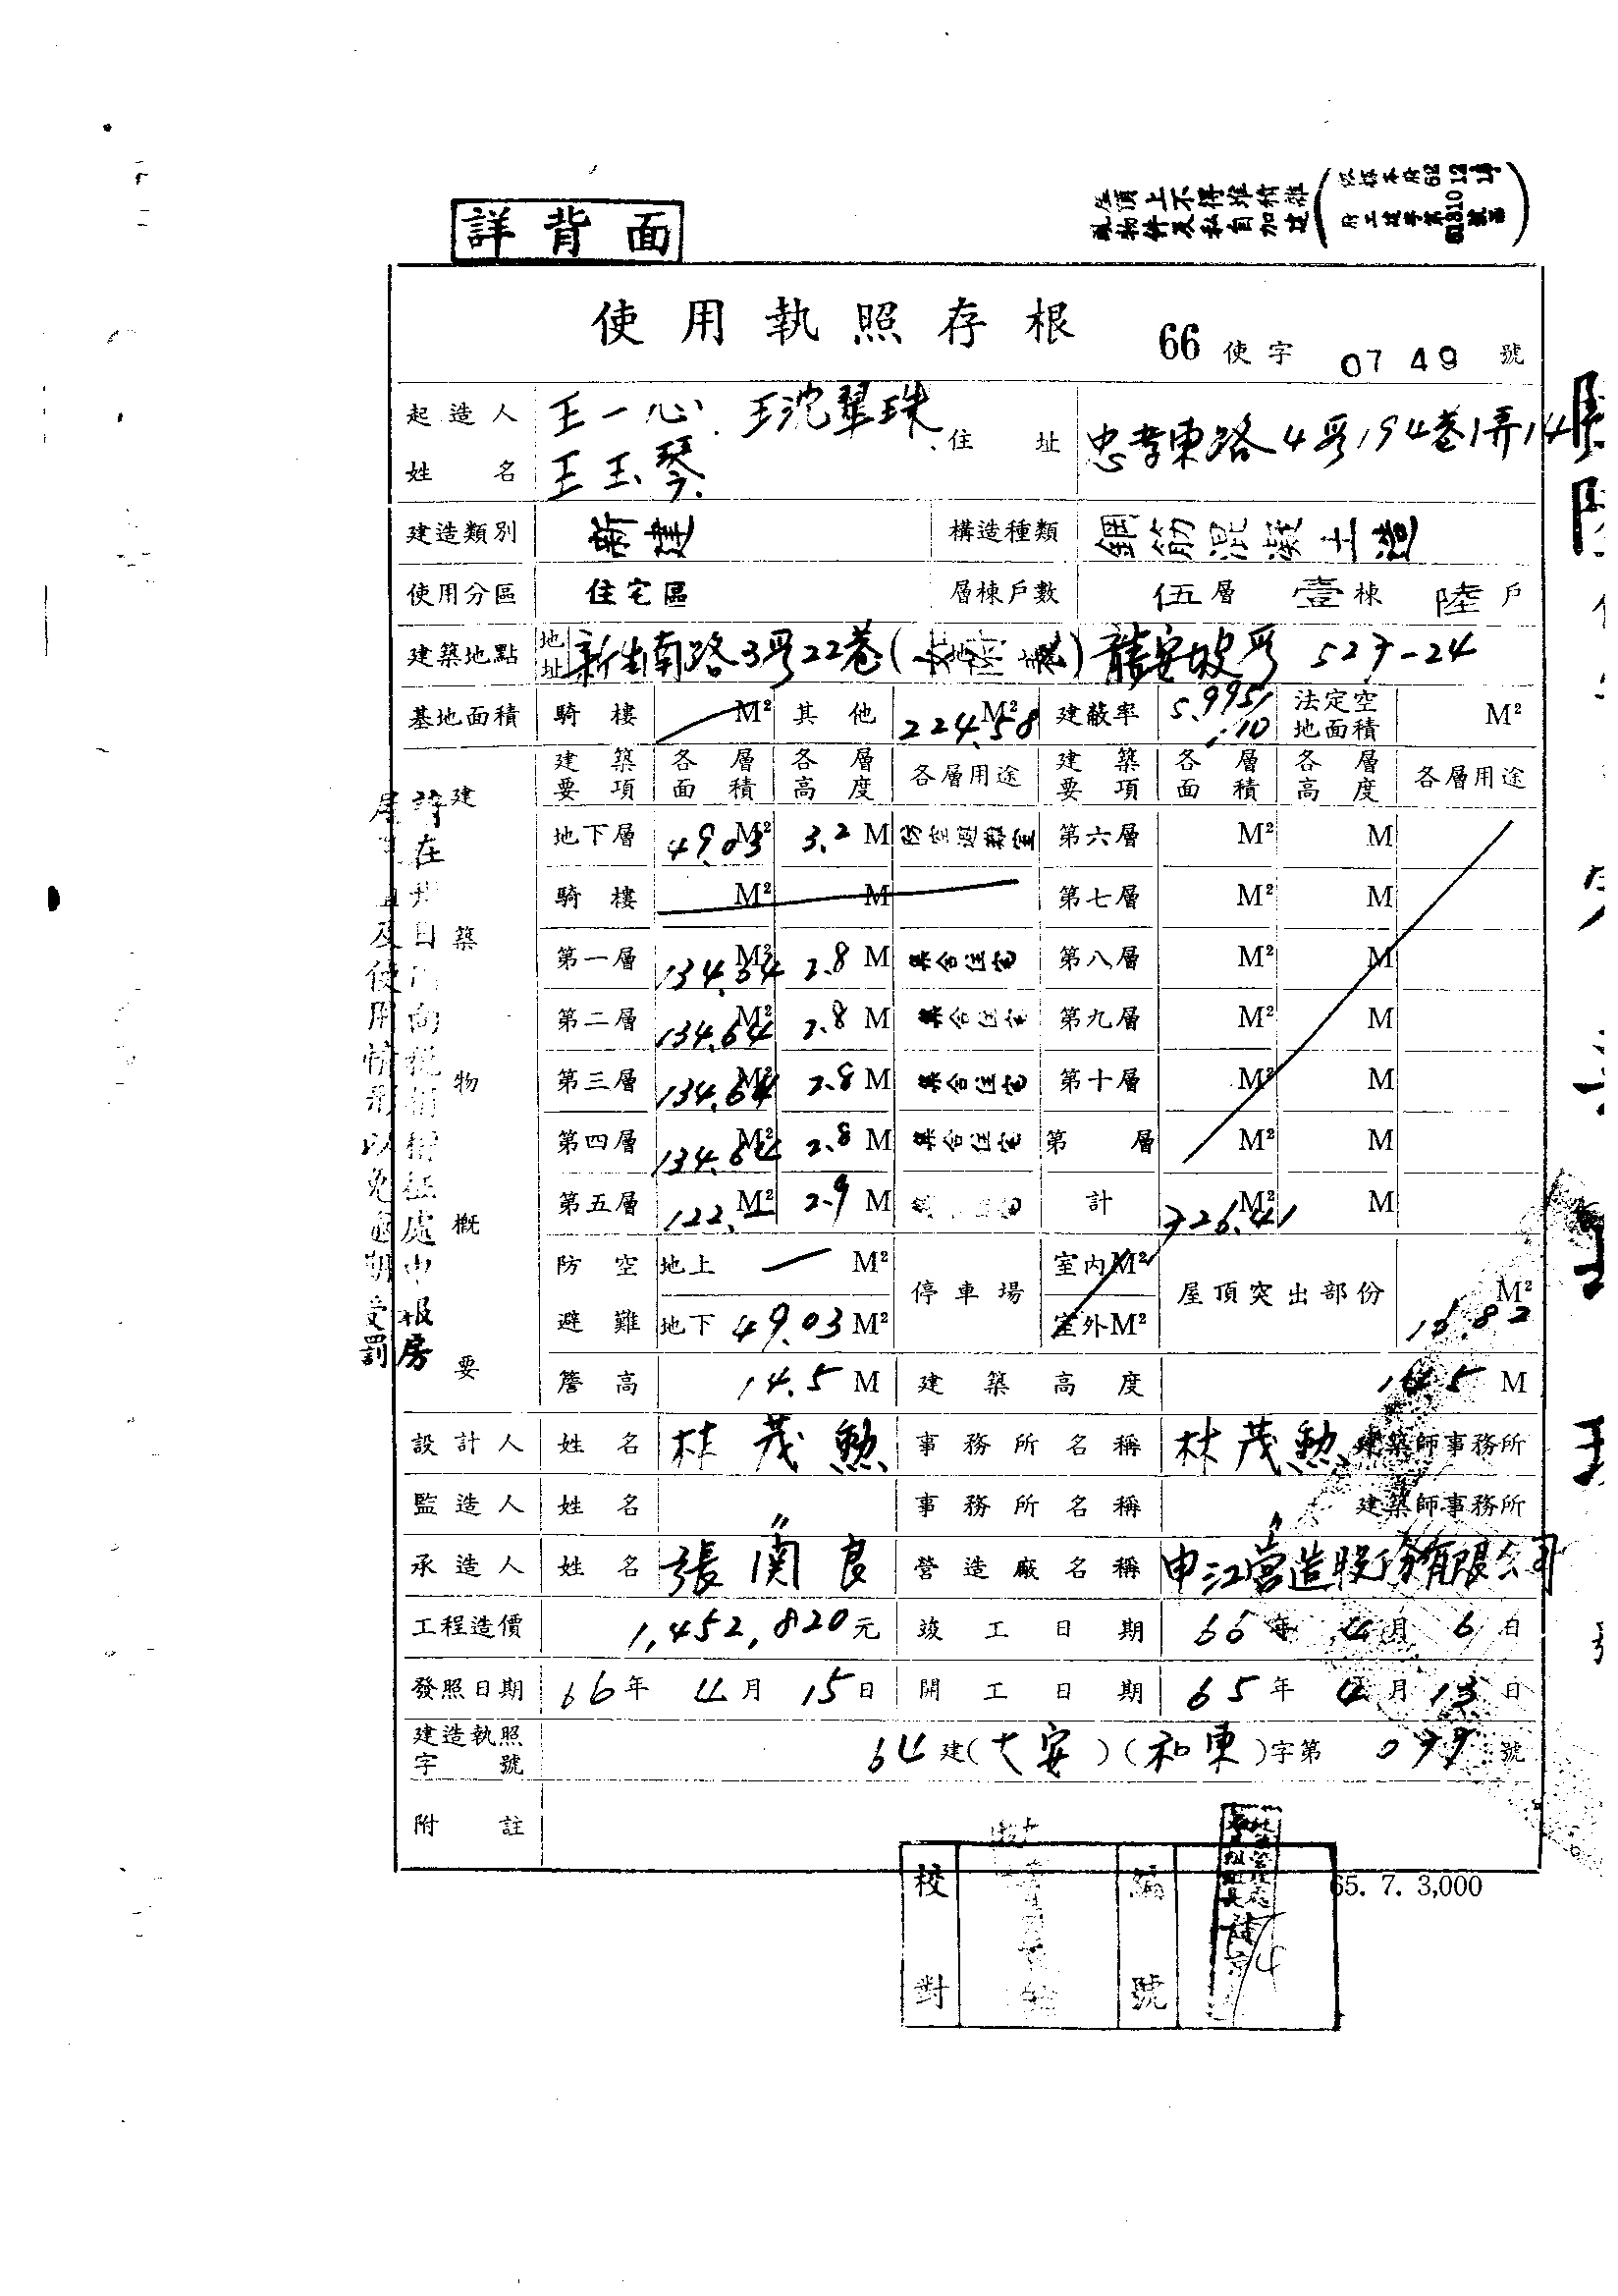 屋頂上不得堆積雜
亂物件及私自加建
詳背面
使用執照存根 66 使字 0749 號
起造人姓名 王一心 王沈翠珠 王玉琴 住址 忠孝東路4段194巷1弄14
建造類別 新建 構造種類 鋼筋混凝土造
使用分區 住宅區 層棟戶數 伍層 壹棟 陸戶
建築地點 地址 新生南路3段22巷( ) 龍安坡段 527-24
基地面積 騎樓 M² 其他 224.58 M² 建蔽率 5.9951/10 法定空地面積 M²
建築物概要
建築要項 各層面積 各層高度 各層用途 建築要項 各層面積 各層高度 各層用途
地下層 49.03 M² 3.2 M 防空避難室 第六層 M² M
騎樓 M² M 第七層 M² M
第一層 134.64 M² 2.8 M 集合住宅 第八層 M² M
第二層 134.64 M² 2.8 M 集合住宅 第九層 M² M
第三層 134.64 M² 2.8 M 集合住宅 第十層 M² M
第四層 134.64 M² 2.8 M 集合住宅 第 層 M² M
第五層 M² 2.9 M 計 726.41 M² M
防空避難 地上 M² 停車場 室內 M² 屋頂突出部份 M²
地下 49.03 M² 室外 M²
簷高 14.5 M 建築高度 14.5 M
設計人 姓名 林茂勲 事務所名稱 林茂勲 建築師事務所
監造人 姓名 〃 事務所名稱 〃 建築師事務所
承造人 姓名 張 良 營造廠名稱 申江營造股份有限公司
工程造價 1,452,820元 竣工日期 66年 4月 6日
發照日期 66年 4月 15日 開工日期 65年 4月 13日
建造執照字號 64建(大安)(和東)字第 號
附註
校對 編號
65. 7. 3,000